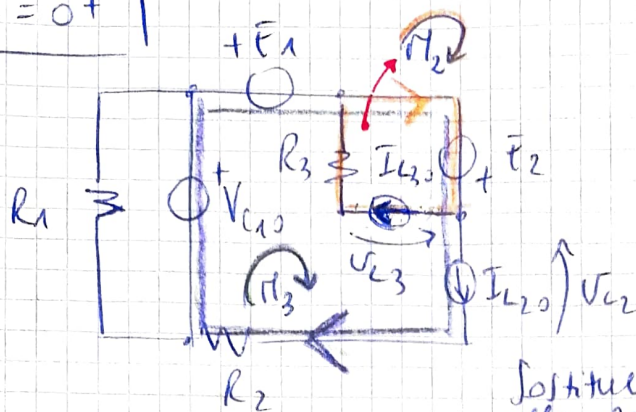 = 0+
+ E1
M2
R3
IL30
+ E2
R1
+
VC10
VL3
M3
IL20
VL2
R2
Sostitue